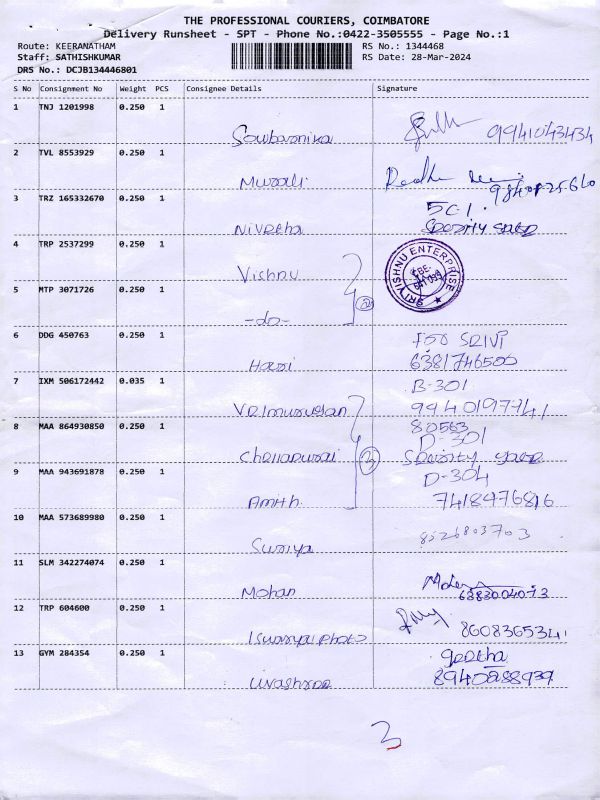 THE PROFESSIONAL COURIERS, COIMBATORE
Delivery Runsheet - SPT - Phone No.:0422-3505555 - Page No.:1
Route: KEERANATHAM RS No.: 1344468
Staff: SATHISHKUMAR RS Date: 28-Mar-2024
DRS No.: DCJB134446801
S No Consignment No Weight PCS Consignee Details Signature
1 TNJ 1201998 0.250 1
Sowbarnika 9941043434
2 TVL 8553929 0.250 1
Murali
3 TRZ 165332670 0.250 1 5C1.
Nivetha
4 TRP 2537299 0.250 1
Vishnu
SRI VISHNU ENTERPRISE
5 MTP 3071726 0.250 1
-do- 2
6 DDG 450763 0.250 1
Hari 6381746500
7 IXM 506172442 0.035 1 B-301
Velmurugan 9940197741
8 MAA 864930850 0.250 1 80563
D-301
Chelladurai 3
9 MAA 943691878 0.250 1 D-304
Amith 7418976816
10 MAA 573689980 0.250 1
Suriya 8526803703
11 SLM 342274074 0.250 1
Mohan 6383004073
12 TRP 604600 0.250 1
Iswarya Photo 8608365341
13 GYM 284354 0.250 1 geetha
8940888939
3